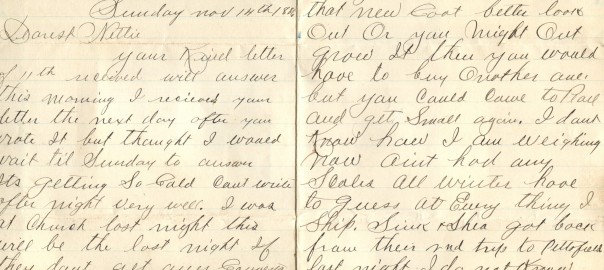 Sunday Nov 14th 18
Dearest Nettie
your Kind letter
of 11th received will answer
this morning I recieved your
letter the next day after you
wrote It but thought I would
wait til Sunday to answer
Its getting So Cold Cant write
after night very well. I was
at Church last night this
will be the last night If
they dont get any
that new Coat better look
Out Or you Might Out
grow It then you would
have to buy Another One.
but you Could Come to
and get Small again. I dont
Know how I am weighing
now aint had any
Scales all winter have
to guess at Every thing I
Ship. & got back
from their 2nd trip to
last night I do not Know